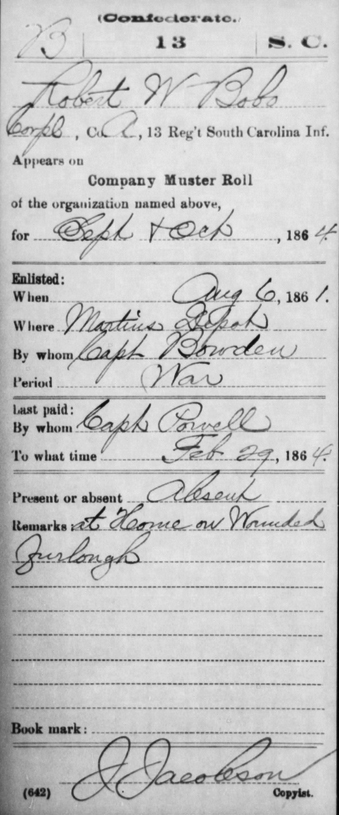 (Confederate.)
B | 13 | S. C.
Robert W Bobo
Corpl, Co. A, 13 Reg't South Carolina Inf.
Appears on
Company Muster Roll
of the organization named above,
for Sept & Oct, 1864.
Enlisted:
When Aug 6, 1861.
Where Martins Depot
By whom Capt Bowden
Period War
Last paid:
By whom Capt Powell
To what time Feb 29, 1864.
Present or absent Absent
Remarks at Home on Wounded
Furlough
Book mark:
J Jacobson
(642) Copyist.